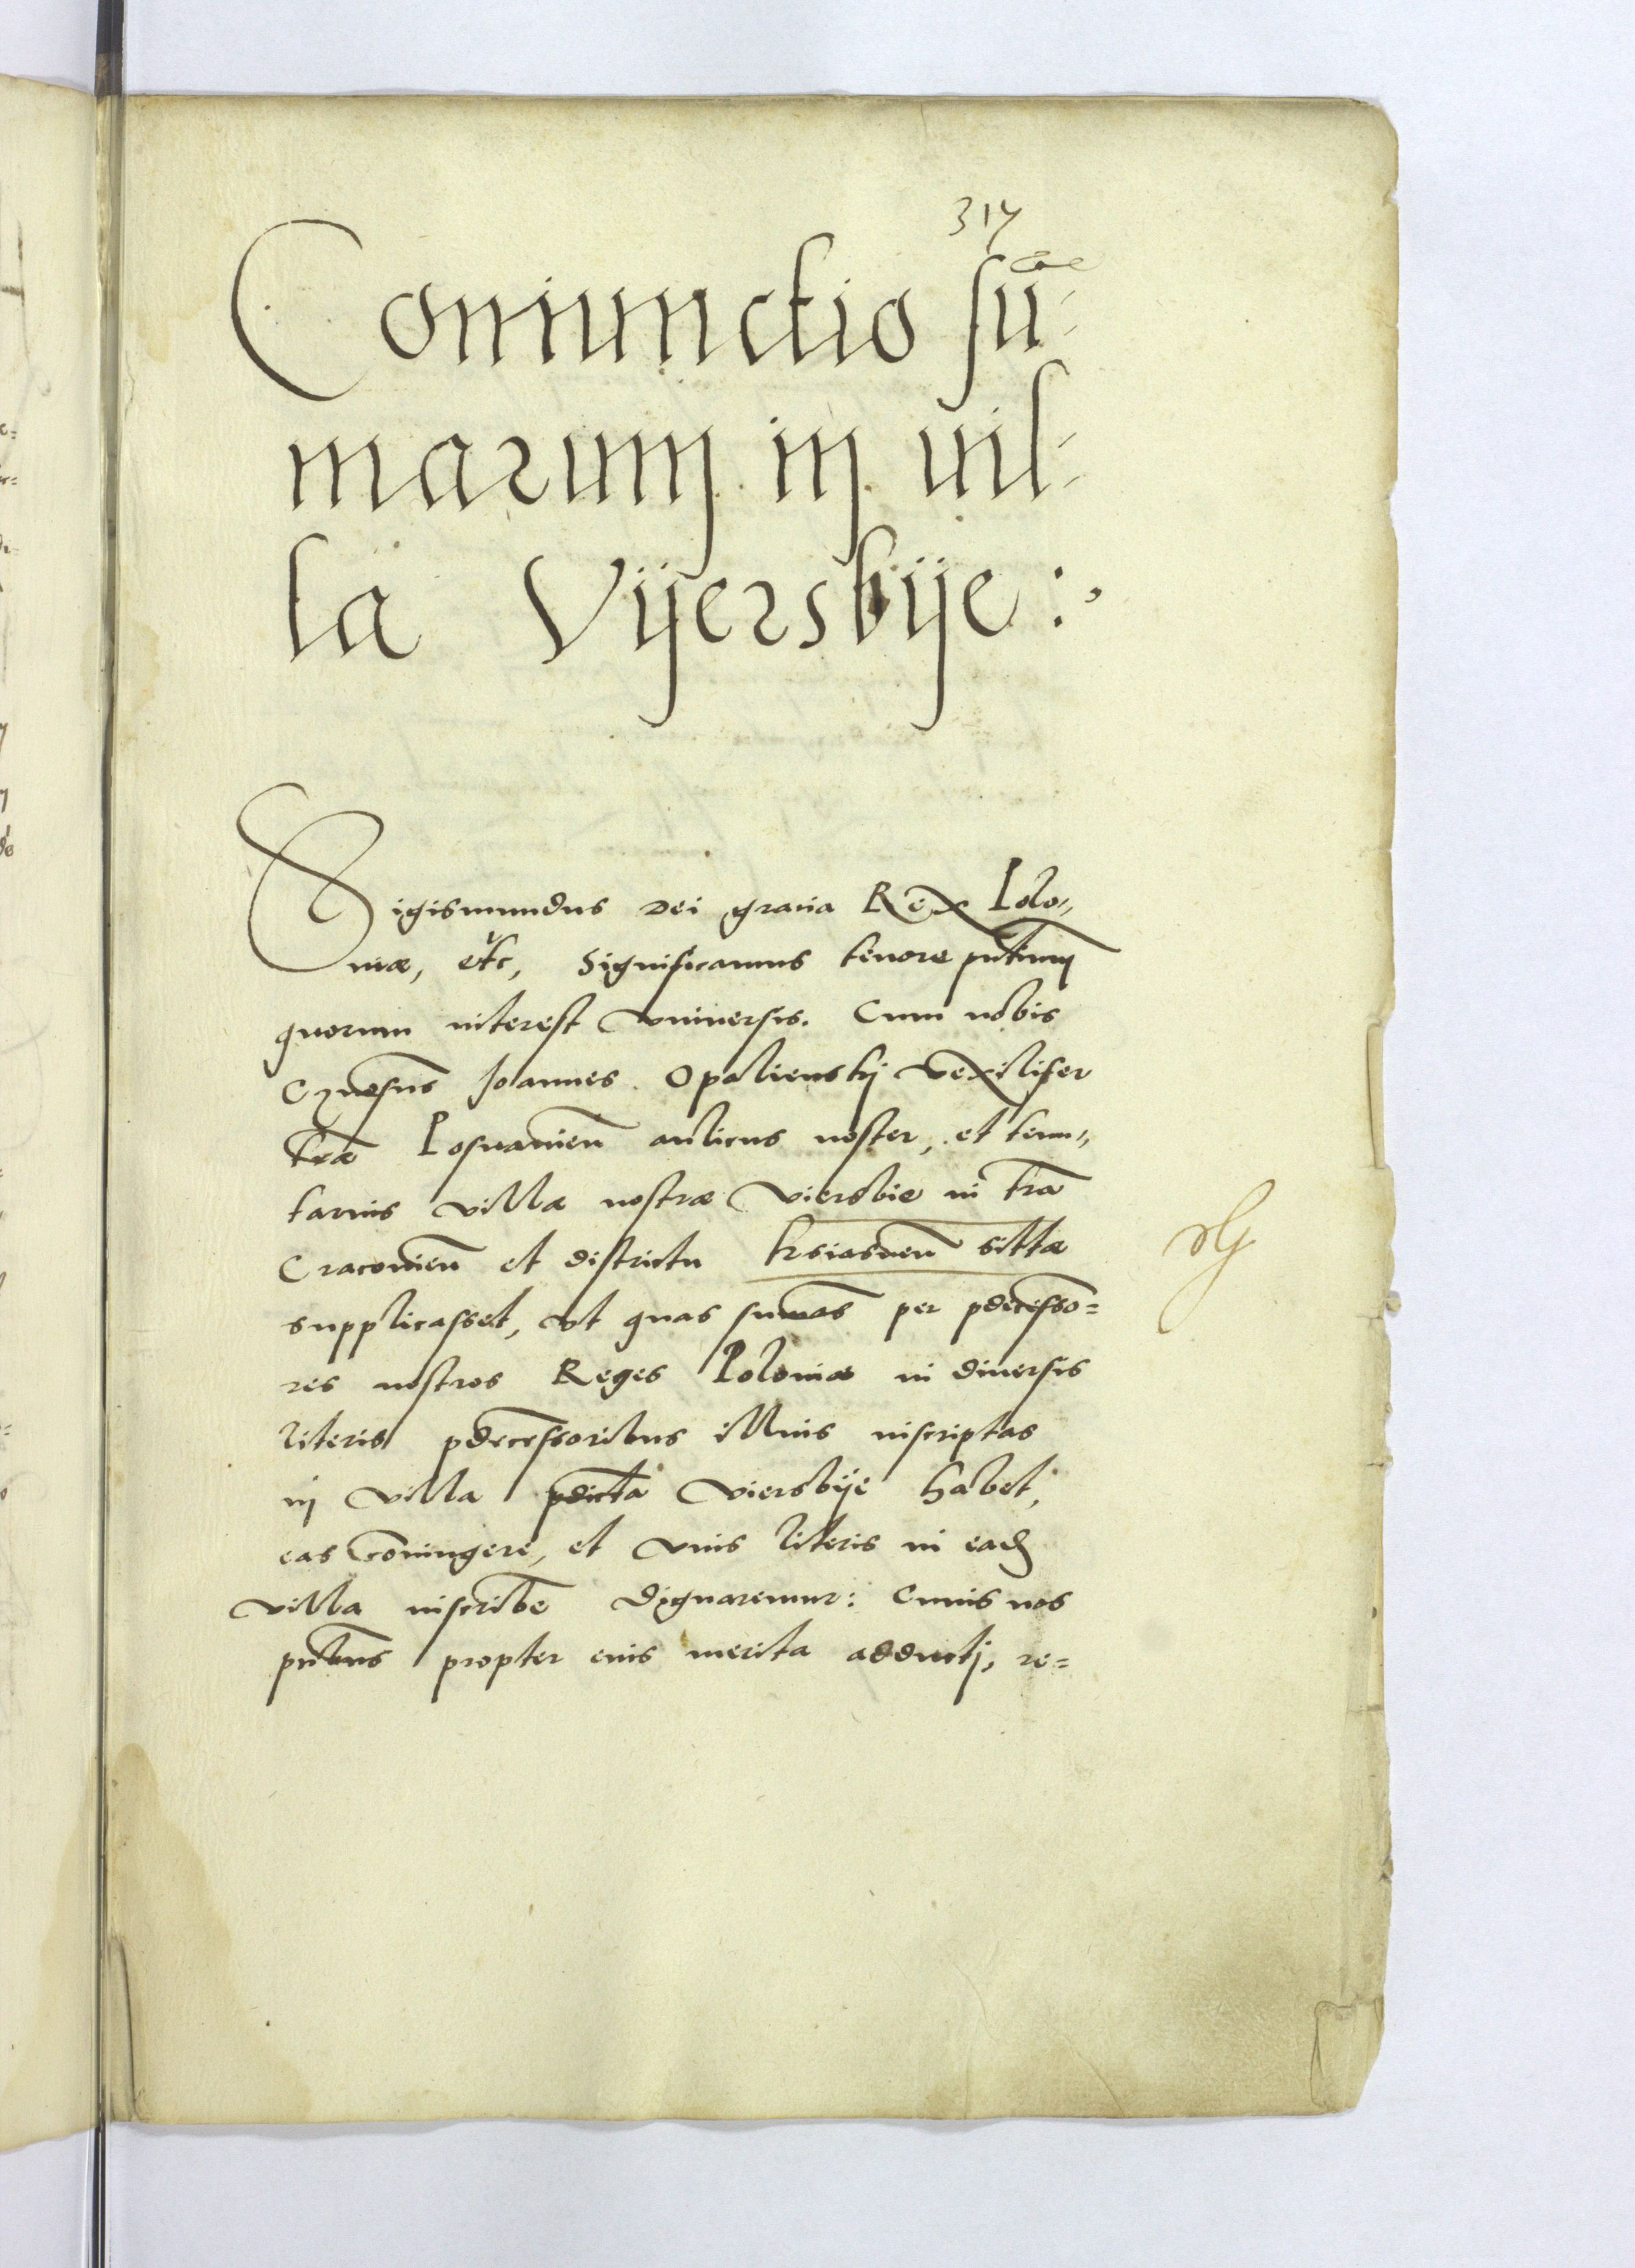 317
Coniunctio sū-
marum in uil-
la Vijersbije:
Sigismundus Dei gratia Rex Polo-
niæ, etc, Significamus tenore pntium
quorum interest vniuersis. Cum nobis
Gnosus Joannes Opalienskj vexilifer
træ Posnanien̄ aulicus noster, et tenu-
tarius villæ nostræ viersbie in tra
Cracouien̄ et districtu ksiasnen̄ sittæ
supplicasset, vt quas sum̄as per p̄decesso=
res nostros Reges Poloniæ in diuersis
literis p̄decessoribus illius inscriptas
in villa p̄dicta viersbije habet,
eas coniungere, et vnis literis in ead̄
villa inscribe dignaremur: Cuius nos
p̄cibus propter eius merita adductj, re=